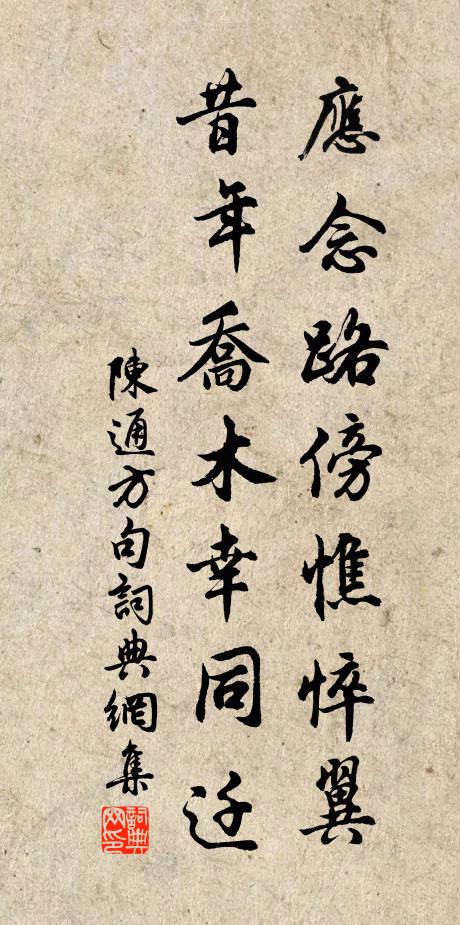 應念路傍憔悴翼
昔年喬木幸同迁
陳通方句詞典網集
詞典网印